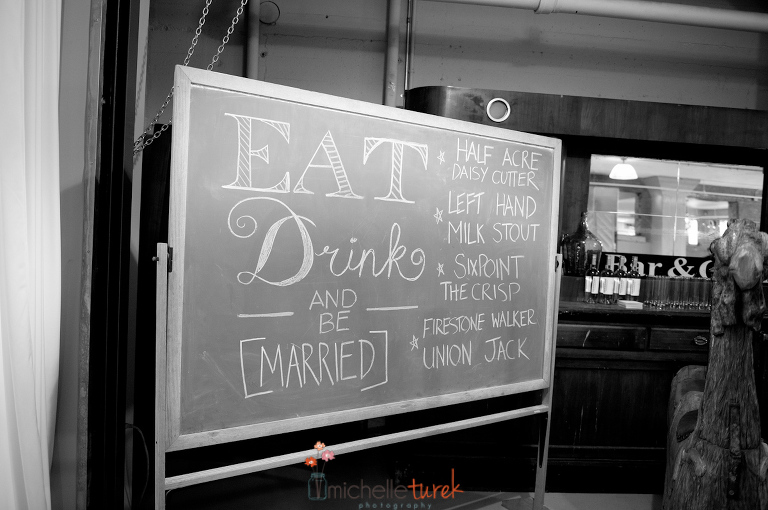 EAT
Drink
AND
BE
[MARRIED]
HALF ACRE
DAISY CUTTER
LEFT HAND
MILK STOUT
SIXPOINT
THE CRISP
FIRESTONE WALKER
UNION JACK
Bar & G
michelle turek
photography